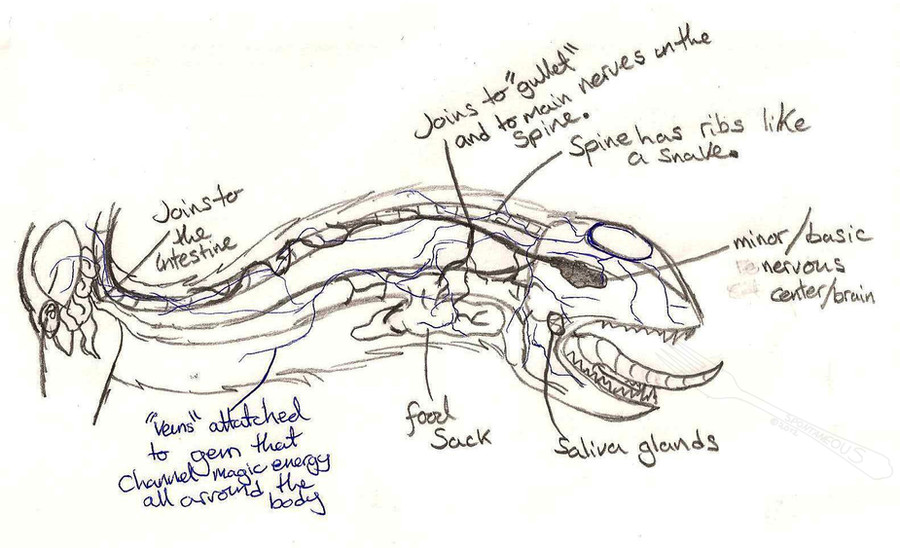 Joins to "gullet"
and to main nerves in the
Spine.
Spine has ribs like
a snake.
Joins to
the
intestine
minor/basic
nervous
center/brain
"veins" attatched
to gem that
Channel magic energy
all arround the
body
food
Sack
Saliva glands
SPONTANEOUS